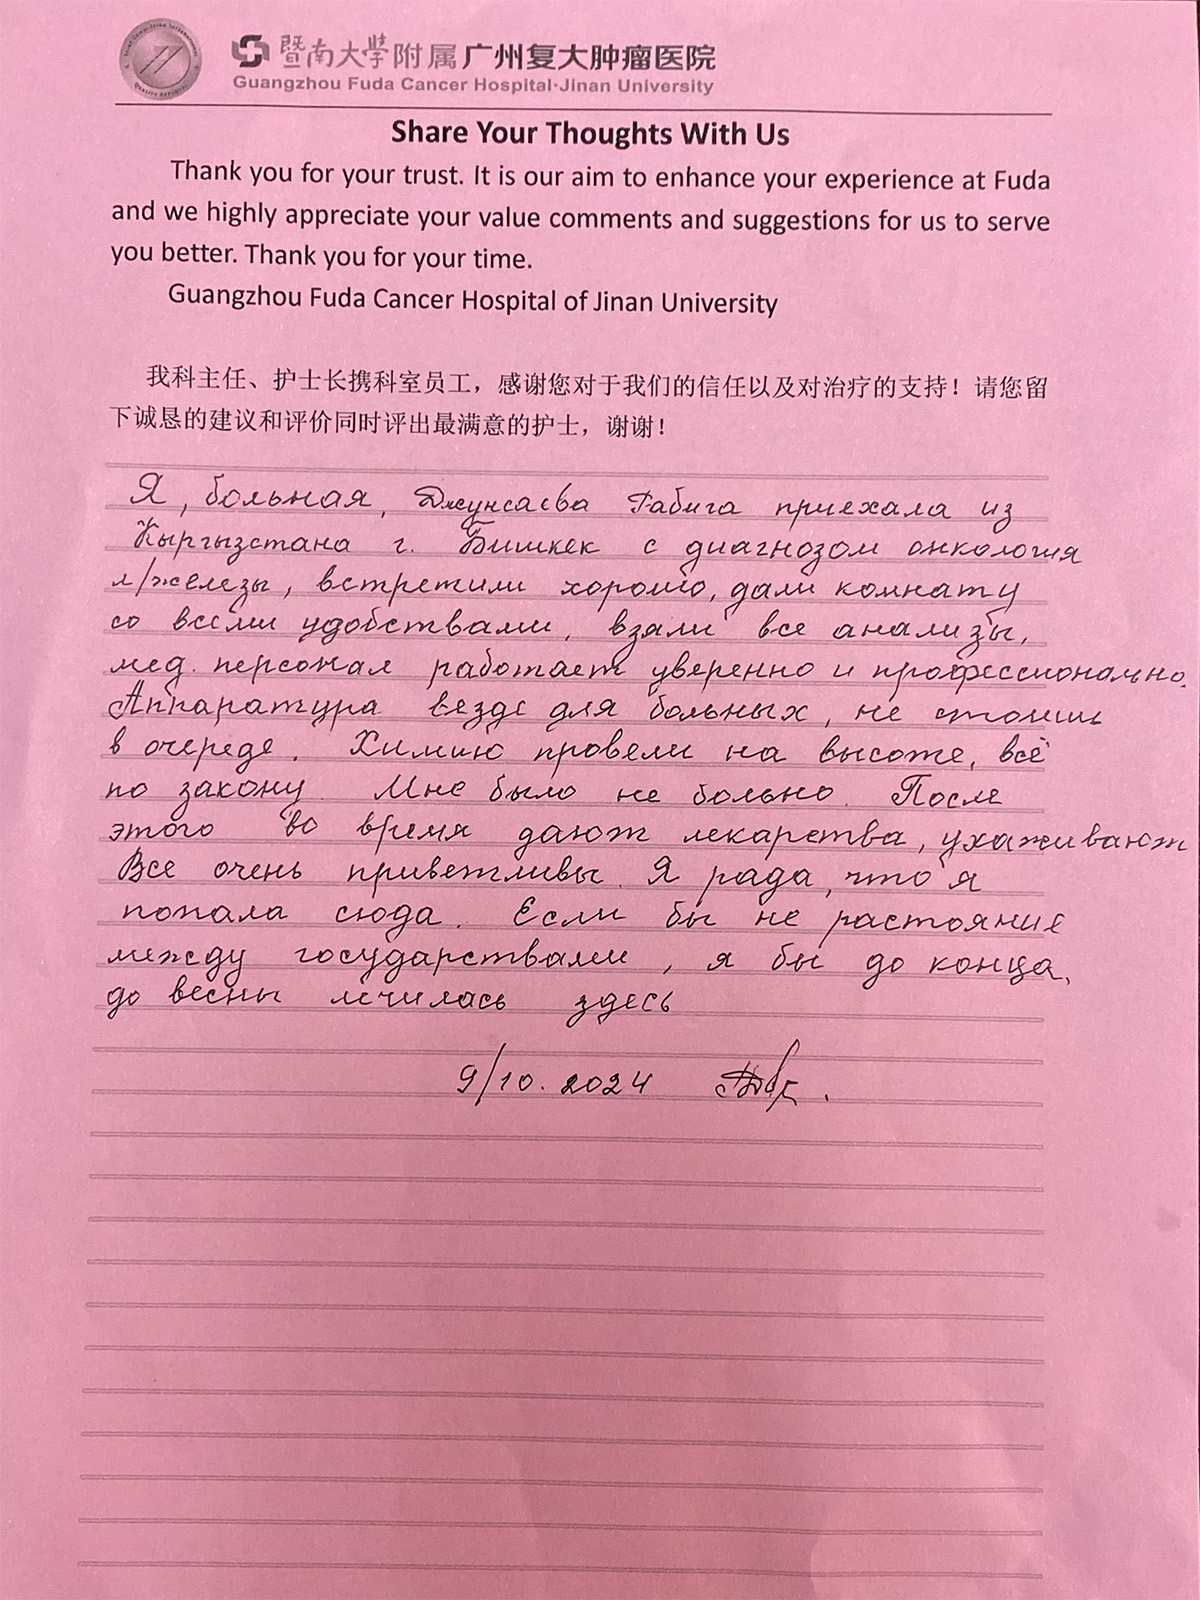 暨南大學附属广州复大肿瘤医院
Guangzhou Fuda Cancer Hospital·Jinan University
Share Your Thoughts With Us
Thank you for your trust. It is our aim to enhance your experience at Fuda
and we highly appreciate your value comments and suggestions for us to serve
you better. Thank you for your time.
Guangzhou Fuda Cancer Hospital of Jinan University
我科主任、护士长携科室员工，感谢您对于我们的信任以及对治疗的支持！请您留
下诚恳的建议和评价同时评出最满意的护士，谢谢！
Я, больная, Джунсаева Рабига приехала из
Кыргызстана г. Бишкек с диагнозом онкология
м/железы, встретили хорошо, дали комнату
со всеми удобствами, взяли все анализы,
мед. персонал работает уверенно и профессионально.
Аппаратура везде для больных, не стоишь
в очереде. Химию провели на высоте, всё
по закону. Мне было не больно. После
этого во время дают лекарства, ухаживают
Все очень приветливы. Я рада, что я
попала сюда. Если бы не растояние
между государствами, я бы до конца,
до весны лечилась здесь
9/10.2024